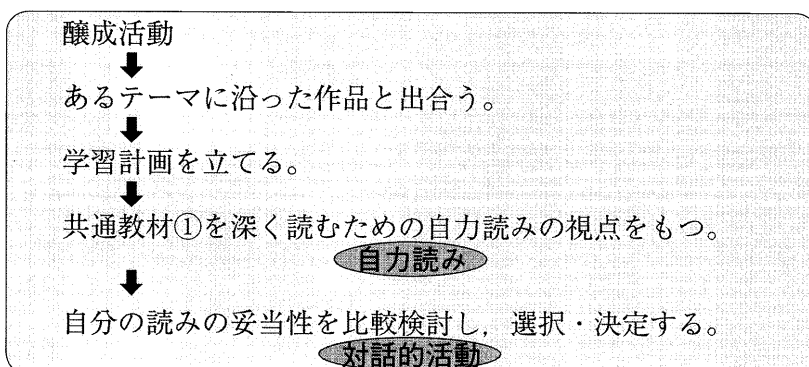 醸成活動
⬇
あるテーマに沿った作品と出合う。
⬇
学習計画を立てる。
⬇
共通教材①を深く読むための自力読みの視点をもつ。
自力読み
⬇
自分の読みの妥当性を比較検討し，選択・決定する。
対話的活動